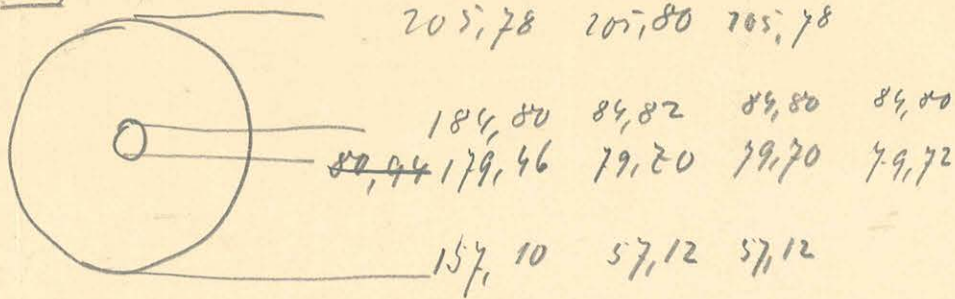 205,78 205,80 205,78
184,80 84,82 84,80 84,80
80,94 179,46 79,70 79,70 79,72
157,10 57,12 57,12